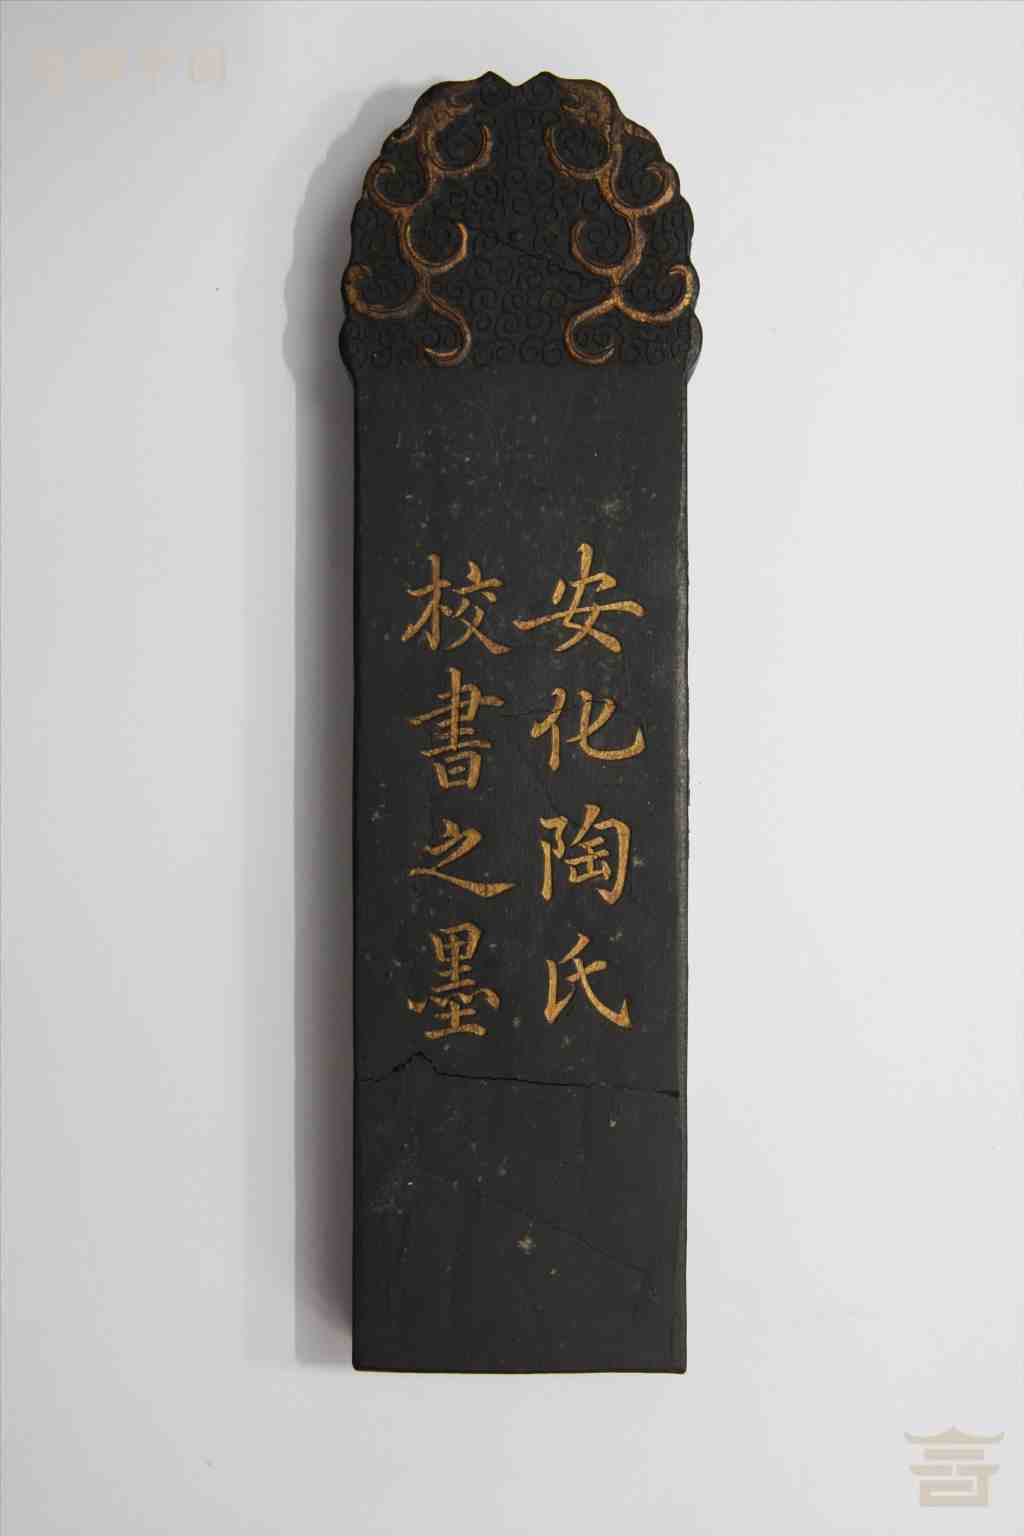 安化陶氏
校書之墨